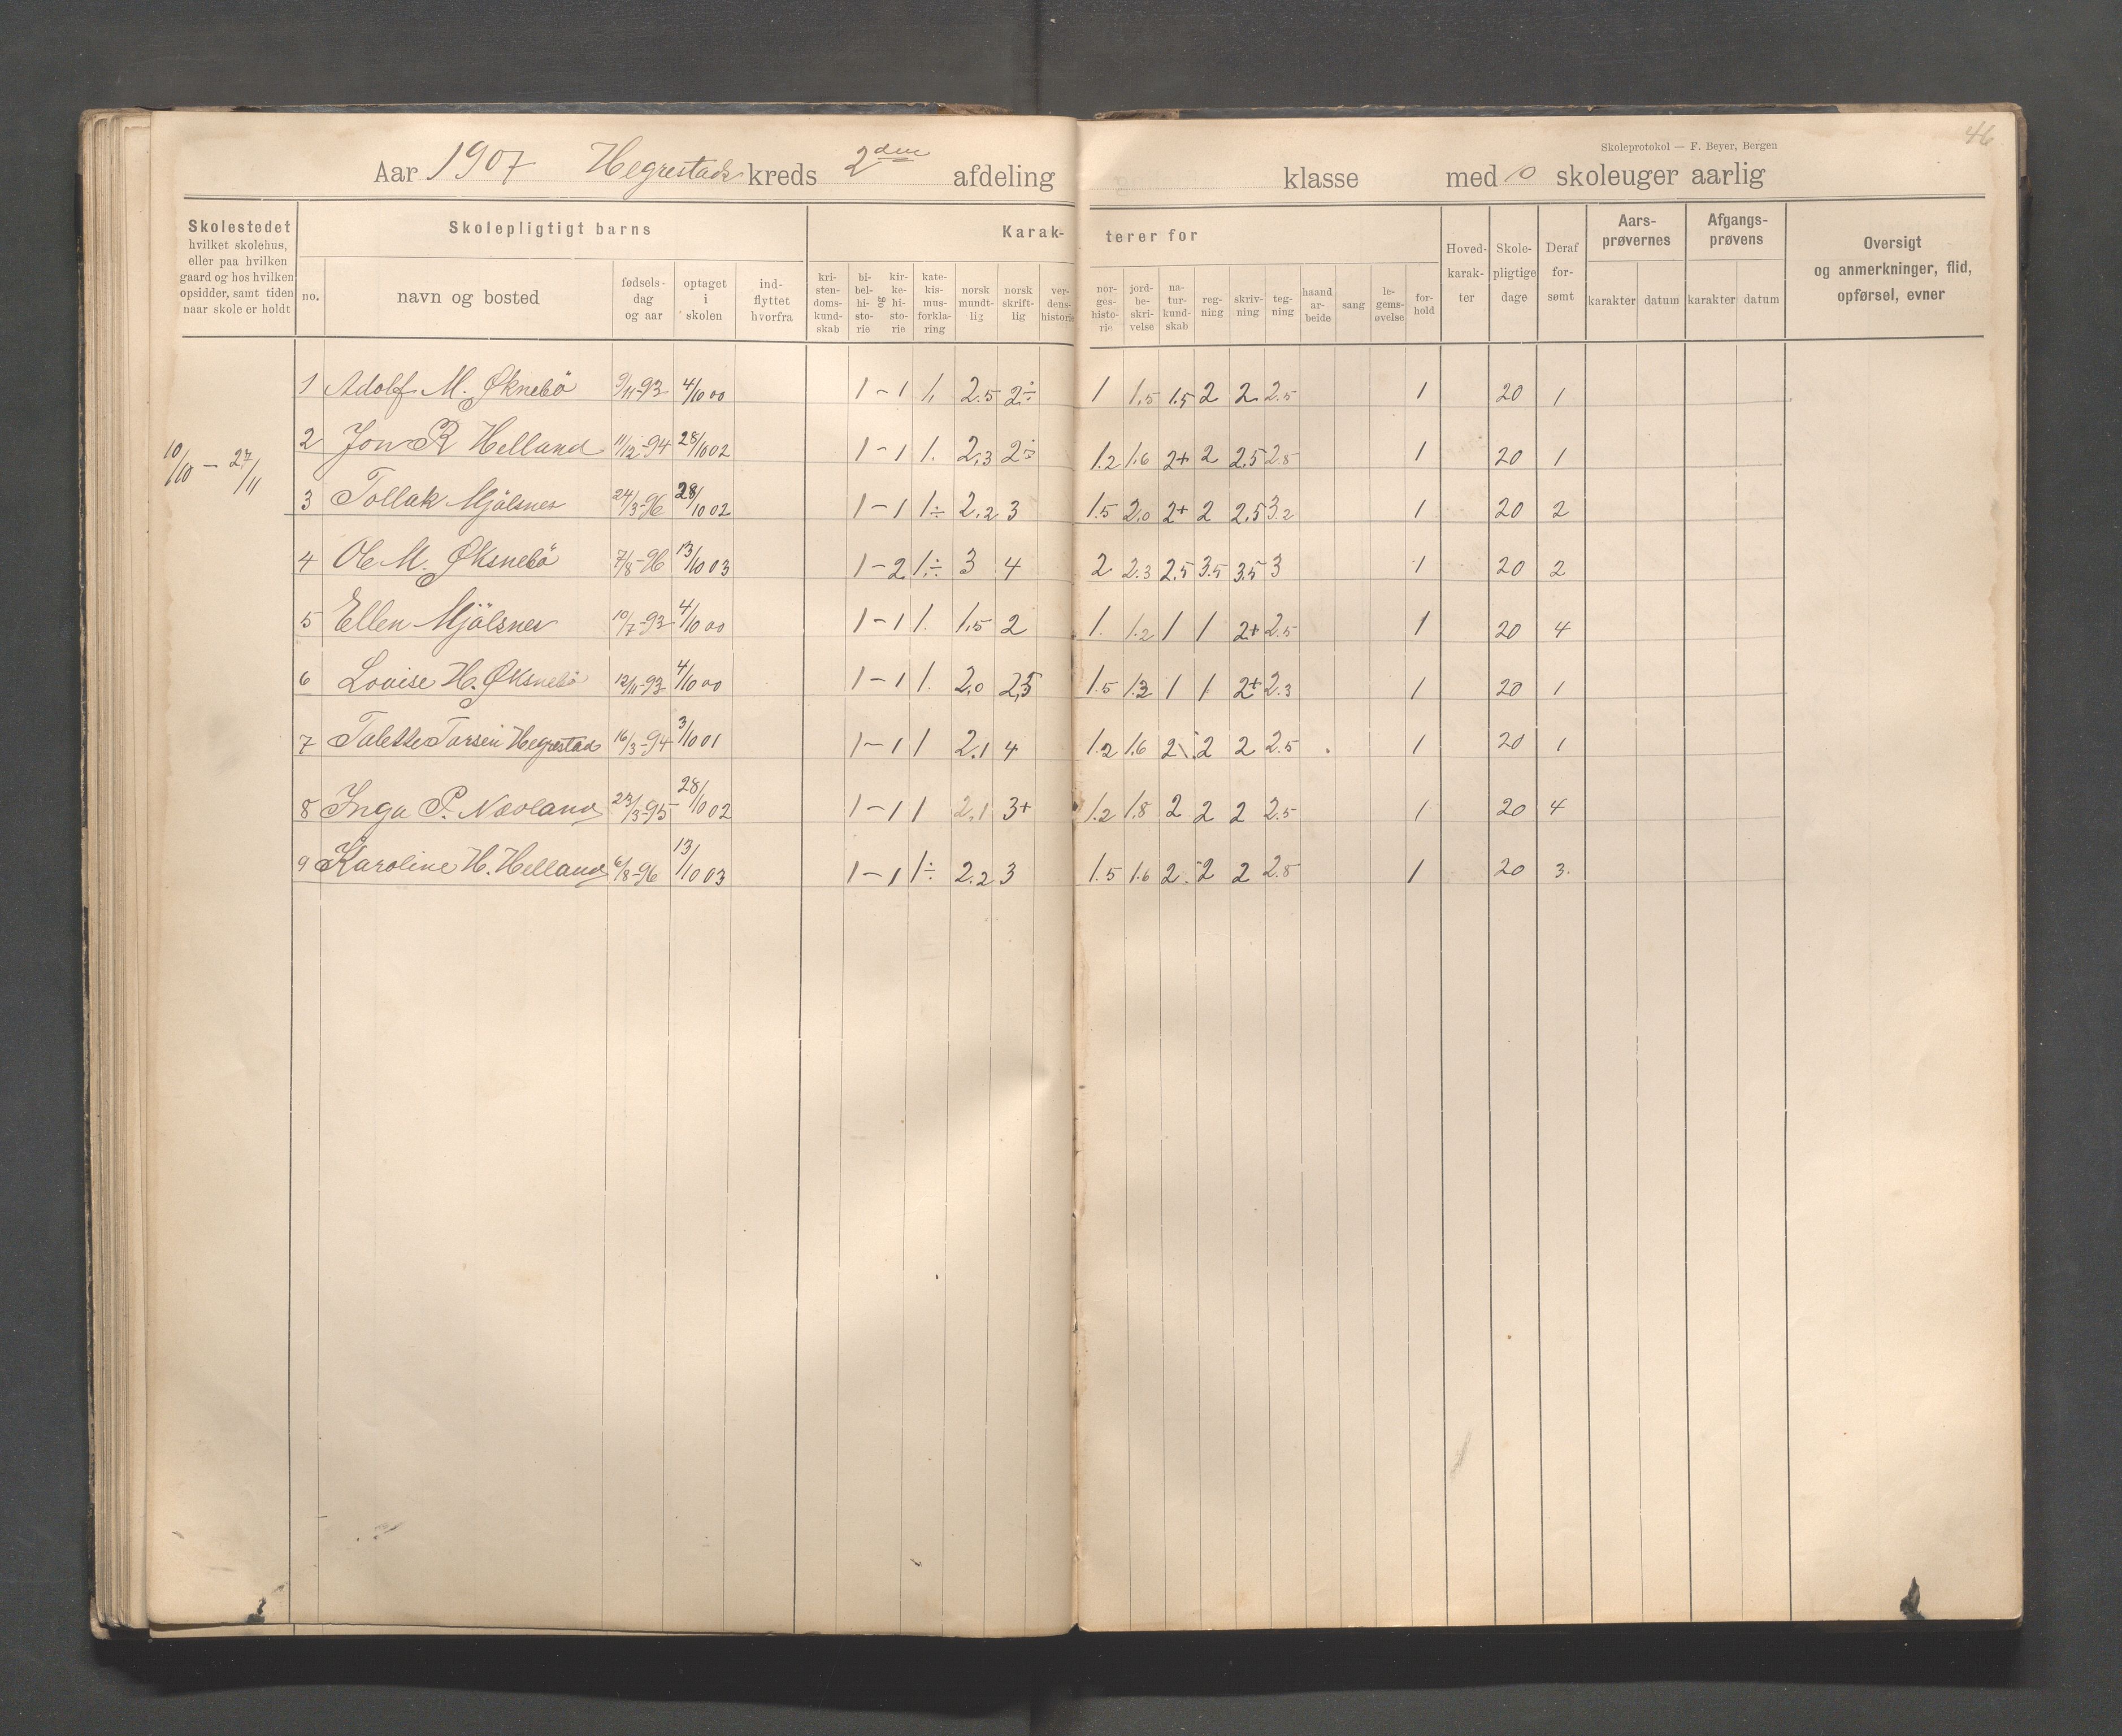 46
Skoleprotokol — F. Beyer, Bergen
Aar 1907 Hegrestads kreds 2den afdeling klasse med 10 skoleuger aarlig
Skolestedet hvilket skolehus, eller paa hvilken gaard og hos hvilken opsidder, samt tiden naar skole er holdt
Skolepligtigt barns
no. navn og bosted fødsels-dag og aar optaget i skolen ind-flyttet hvorfra
Karak- terer for
kri-sten-doms-kund-skab bi-bel-hi-sto-rie og kir-ke-hi-sto-rie kate-kis-mus-forkla-ring norsk mundt-lig norsk skrift-lig ver-dens-historie nor-ges-histo-rie jord-be-skri-velse na-tur-kund-skab reg-ning skriv-ning teg-ning haand ar-beide sang le-gems-øvelse for-hold
Hoved-karak-ter Skole-pligtige dage Deraf for-sømt
Aars-prøvernes karakter datum Afgangs-prøvens karakter datum
Oversigt og anmerkninger, flid, opførsel, evner
10/10 — 27/11
1 Adolf M. Øknebö 9/11-93 4/10 00 1 - 1 1. 2.5 2÷ 1 1.5 1.5 2 2 2.5 1 20 1
2 Jon R Helland 11/12-94 28/10 02 1 - 1 1. 2.3 2÷ 1.2 1.6 2+ 2 2.5 2.8 1 20 1
3 Tollak Mjölsnes 24/3-96 28/10 02 1 - 1 1÷ 2.2 3 1.5 2.0 2+ 2 2.5 3.2 1 20 2
4 Ole M. Øksnebö 7/8-96 13/10 03 1 - 2 1÷ 3 4 2 2.3 2.5 3.5 3.5 3 1 20 2
5 Ellen Mjölsnes 10/7-93 4/10 00 1 - 1 1. 1.5 2 1. 1.2 1 1 2+ 2.5 1 20 4
6 Lovise H. Øksnebö 12/11-93 4/10 00 1 - 1 1. 2.0 2,5 1.5 1.3 1 1 2+ 2.3 1 20 1
7 Talette Tarsen Hegrestad 16/3-94 3/10 01 1 - 1 1 2.1 4 1.2 1.6 2 2 2 2.5 1 20 1
8 Inga P. Navland 23/3-95 28/10 02 1 - 1 1 2.1 3+ 1.2 1.8 2 2 2 2.5 1 20 4
9 Karoline H. Helland 6/8-96 13/10 03 1 - 1 1÷ 2.2 3 1.5 1.6 2 2 2 2.8 1 20 3.